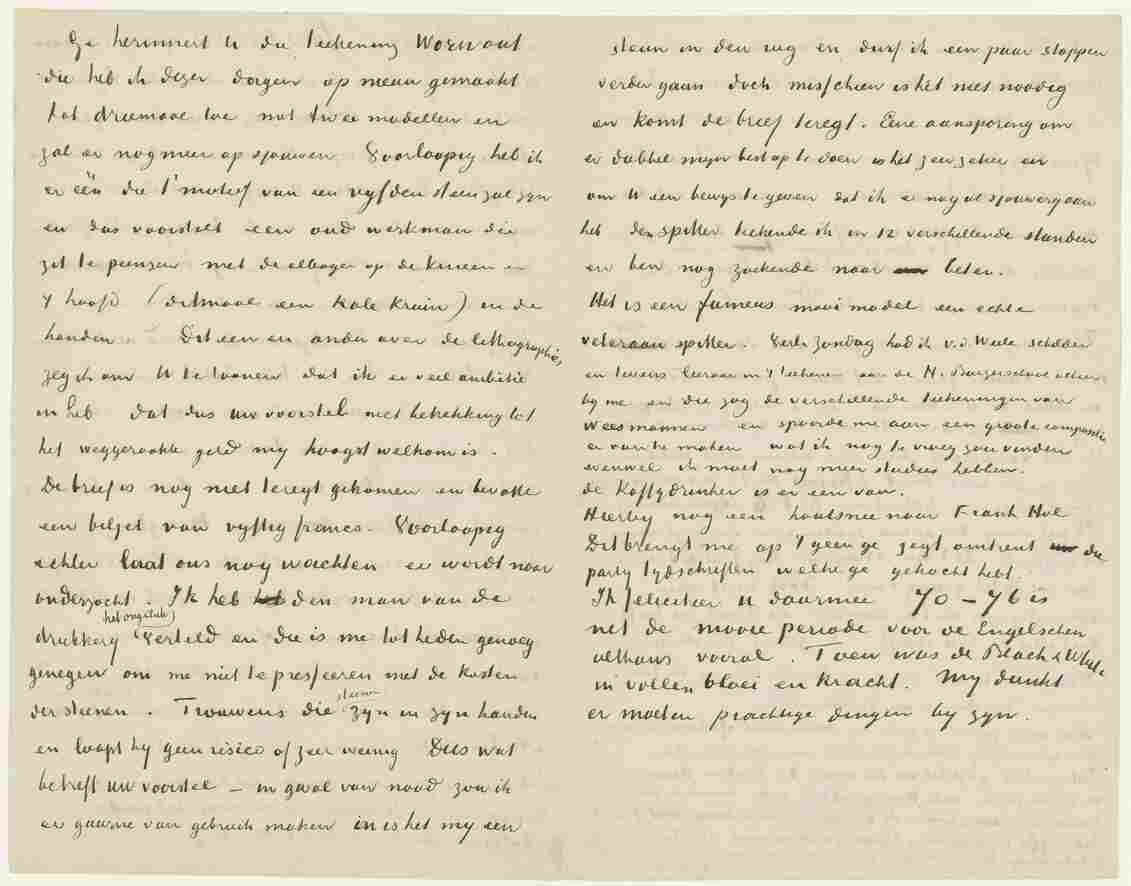 Ge herinnert U die teekening Worn out
die heb ik dezer dagen op nieuw gemaakt
tot driemaal toe met twee modellen en
zal er nog meer op sjouwen. Voorloopig heb ik
er één die 't motief van een vijfden steen zal zijn
en dus voorstelt een oud werkman die
zit te peinzen met de elbogen op de knieen en
't hoofd (ditmaal een kale kruin) in de
handen. Dit een en ander over de lithographies
zeg ik om U te toonen dat ik er veel ambitie
in heb dat dus uw voorstel met betrekking tot
het weggeraakte geld mij hoogst welkom is.
De brief is nog niet teregt gekomen en bevatte
een biljet van vijftig francs. Voorloopig
echter laat ons nog wachten er wordt naar
onderzocht. Ik heb den man van de
drukkerij het ongeluk verteld en die is me tot heden genoeg
genegen om me niet te presseeren met de kosten
der steenen. Trouwens die steenen zijn in zijn handen
en loopt hij geen risico of zeer weinig Dus wat
betreft uw voorstel – in geval van nood zou ik
er gaarne van gebruik maken in is het mij een
steun in den rug en durf ik een paar stappen
verder gaan doch misschien is het niet noodig
en komt de brief teregt. Eene aansporing om
er dubbel mijn best op te doen is het zeer zeker en
om U een bewijs te geven dat ik er nog al sjouwerij aan
heb den spitter teekende ik in 12 verschillende standen
en ben nog zoekende naar beter.
Het is een fameus mooi model een echte
veteraan spitter. Verl. Zondag had ik v.d. Weele schilder
en tevens leeraar in 't teekenen aan de H. Burgerschool alhier
bij me en die zag de verschillende teekeningen van
Weesmannen en spoorde me aan een groote compositie
er van te maken wat ik nog te vroeg zou vinden
evenwel ik moet nog meer studies hebben.
de Koffijdrinker is er een van.
Hierbij nog een houtsnee naar Frank Hol
Dit brengt me op 't geen ge zegt omtrent die
partij tijdschriften welke ge gekocht hebt.
Ik feliciteer U daarmee 70–76 is
net de mooie periode voor de Engelschen
althans vooral. Toen was de Black & White
in vollen bloei en kracht. Mij dunkt
er moeten prachtige dingen bij zijn.